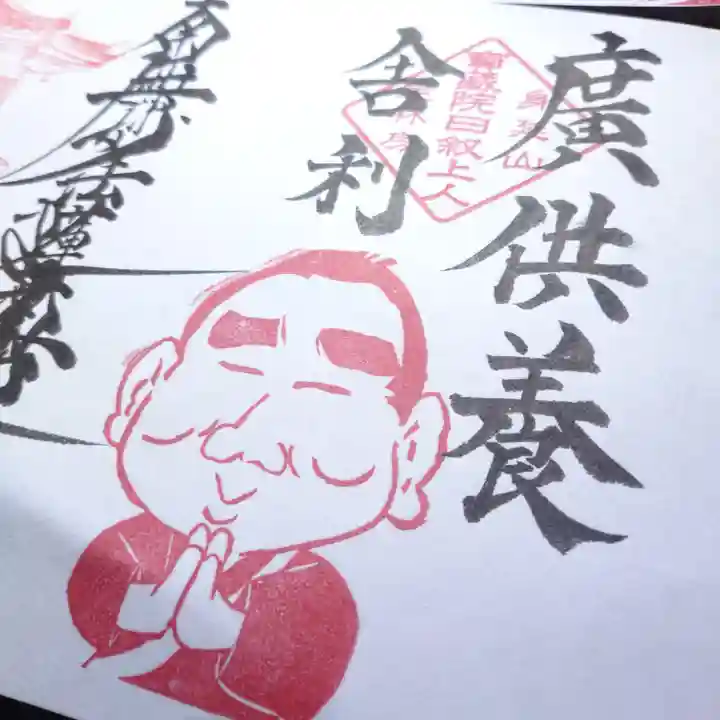 廣供養
舍利
身延山
寶蔵院日叙上人
南無妙法蓮華経